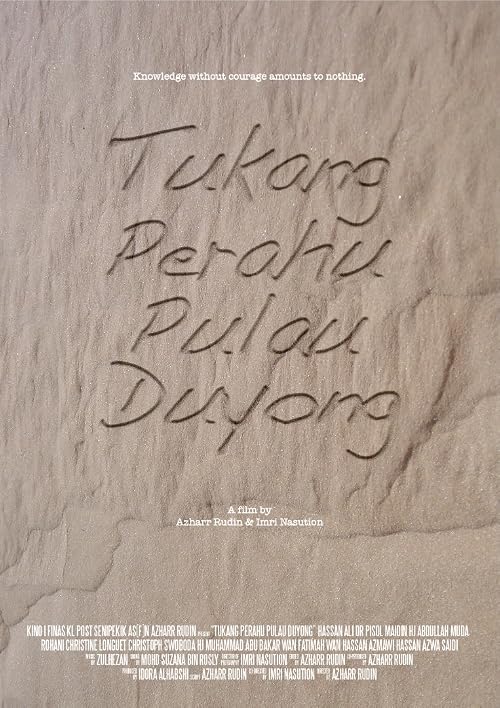 Knowledge without courage amounts to nothing.
Tukang
Perahu
Pulau
Duyong
A film by
Azharr Rudin & Imri Nasution
KINO I FINAS KL POST SENIPEKIK AS[F]N AZHARR RUDIN PRESENT "TUKANG PERAHU PULAU DUYONG" HASSAN ALI DR PISOL MAIDIN HJ ABDULLAH MUDA
ROHANI CHRISTINE LONGUET CHRISTOPH SWOBODA HJ MUHAMMAD ABU BAKAR WAN FATIMAH WAN HASSAN AZMAWI HASSAN AZWA SAIDI
BY ZULHEZAN BY MOHD SUZANA BIN ROSLY DIRECTOR OF PHOTOGRAPHY IMRI NASUTION BY AZHARR RUDIN AZHARR RUDIN
BY IDORA ALHABSHI AZHARR RUDIN BY IMRI NASUTION DIRECTED BY AZHARR RUDIN